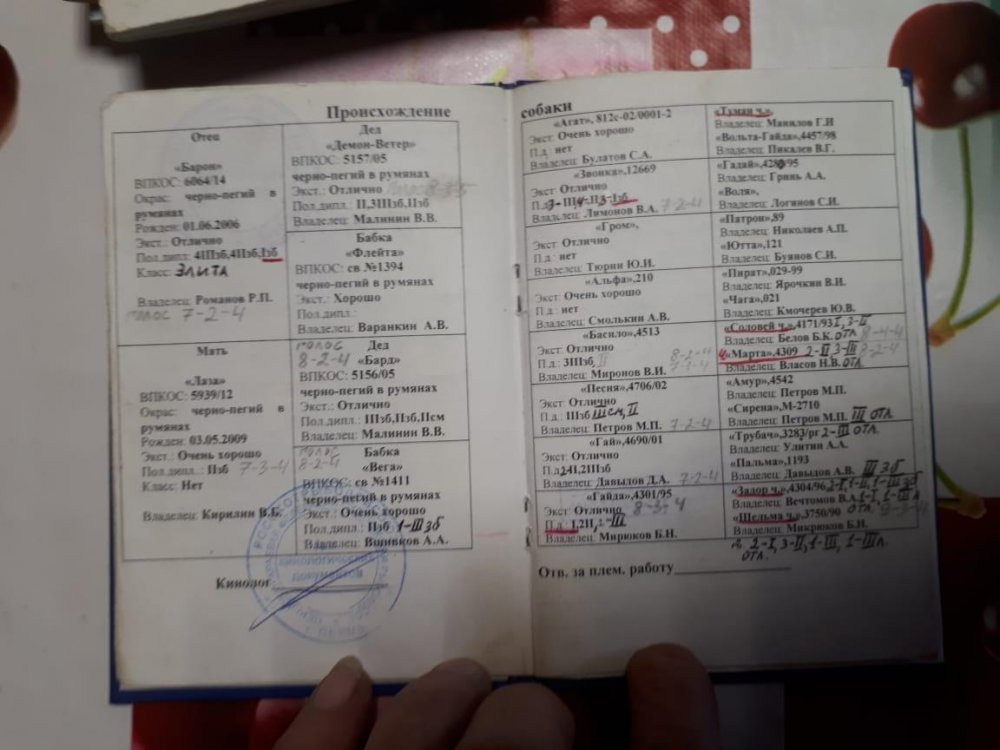 Происхождение
Отец
«Барон»
ВПКОС: 6064/14
Окрас: черно-пегий в
румянах
Рожден: 01.06.2006
Экст.: Отлично
Пол.дипл: 4IIIзб,4IIзб,Iзб
Класс: ЭЛИТА
Владелец: Романов Р.П.
голос 7-2-4
Дед
«Демон-Ветер»
ВПКОС: 5157/05
черно-пегий в румянах
Экст.: Отлично голос 8-3-5
Пол.дипл : II,3IIIзб,IIзб
Владелец: Малинин В.В.
Бабка
«Флейта»
ВПКОС: св №1394
черно-пегий в румянах
Экст.: Хорошо
Пол.дипл.:
Владелец: Варанкин А.В.
Мать
«Лаза»
ВПКОС: 5939/12
Окрас: черно-пегий в
румянах
Рожден: 03.05.2009
Экст.: Очень хорошо
Пол.дипл.: IIзб 7-3-4
Класс: Нет
Владелец: Кирилин В.Б.
голос Дед
8-2-4 «Бард»
ВПКОС: 5156/05
черно-пегий в румянах
Экст.: Отлично
Пол.дипл.: IIIзб,IIзб,IIсм
Владелец: Малинин В.В.
голос Бабка
8-2-4 «Вега»
ВПКОС: св №1411
черно-пегий в румянах
Экст.: Очень хорошо
Пол.дипл.: IIзб 1-III зб
Владелец: Вшивков А.А.
Кинолог
собаки
«Агат», 812с-02/0001-2
Экст: Очень хорошо
П.д : нет
Владелец: Булатов С.А.
«Звонка»,12669
Экст: Отлично
Владелец: Лимонов В.А. 7-2-4
«Гром»,
Экст: Отлично
П.д : нет
Владелец: Тюрин Ю.И.
«Альфа»,210
Экст: Очень хорошо
П.д : нет
Владелец: Смолькин А.В.
«Басило»,4513
Экст: Отлично
П.д : 3IIIзб, II 8-2-4
Владелец: Миронов В.И. 7-1-4
«Песня»,4706/02
Экст: Отлично
П.д: IIIзб IIIсм, II
Владелец: Петров М.П. 7-2-4
«Гай»,4690/01
Экст: Отлично
Владелец: Давыдов Д.А. 7-2-4
«Гайда»,4301/95
Экст: Отлично 8-3-4
П.д.: I,2II,2-III
Владелец: Мирюков Б.Н.
«Туман ч.»,
Владелец: Манилов Г.И
«Вольта-Гайда»,4457/98
Владелец: Пикалев В.Г.
«Гадай»,4280/95
Владелец: Гринь А.А.
«Воля»,
Владелец: Логинов С.И.
«Патрон»,89
Владелец: Николаев А.П.
«Ютта»,121
Владелец: Буянов С.И.
«Пират»,029-99
Владелец: Ярочкин В.И.
«Чага»,021
Владелец: Кмочерев Ю.В.
«Соловей ч.»,4171/93 I, 3-II
Владелец: Белов Б.К. отл 8-4-4
ч «Марта»,4309 2-II 3-III 8-2-4
Владелец: Власов Н.В. отл
«Амур»,4542
Владелец: Петров М.П.
«Сирена»,М-2710
Владелец: Петров М.П. III отл.
«Трубач»,3283/рг 2-III отл.
Владелец: Улитин А.А.
«Пальма»,1193
Владелец: Давыдов А.В. III зб
«Задор ч.»,4304/96, 2-I, 1-II, 1-III зб
Владелец: Вечтомов В.А. 1-I, 1-III л
«Шельма ч.»,3750/90 отл. 8-3-4
Владелец: Микрюков Б.Н.
2-I, 3-II, 1-III, 1-IIIл.
отл.
Отв. за плем. работу